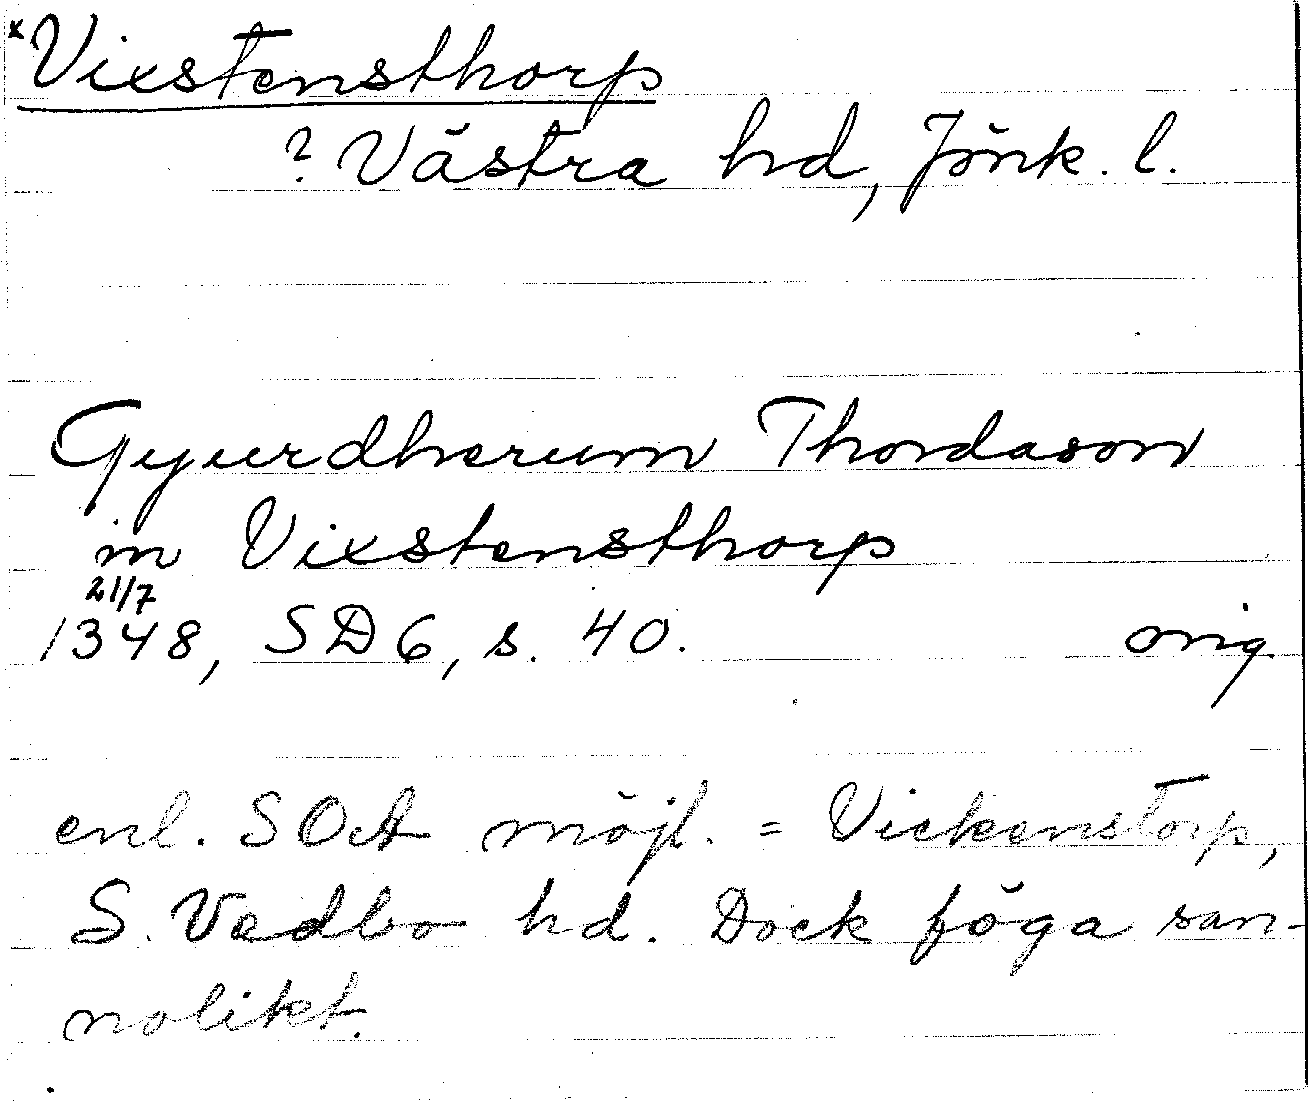 x Vixstensthorp
? Västra hd, Jönk. l.
Gyurdherum Thordason
in Vixstensthorp
21/7
1348, SD6, s. 40. orig.
enl. SOA möjl. = Vickenstorp,
S. Vedbo hd. Dock föga san-
nolikt.